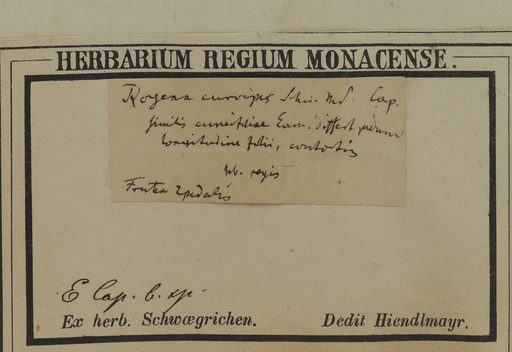 HERBARIUM REGIUM MONACENSE.
Royena curvipes Schw. Md. Cap.
similis cuneifoliae Eam. differt pedunc
longitudine folii, contortis
hb. regis
Frutex 2pedalis
E Cap. b. sp.
Ex herb. Schwægrichen. Dedit Hiendlmayr.